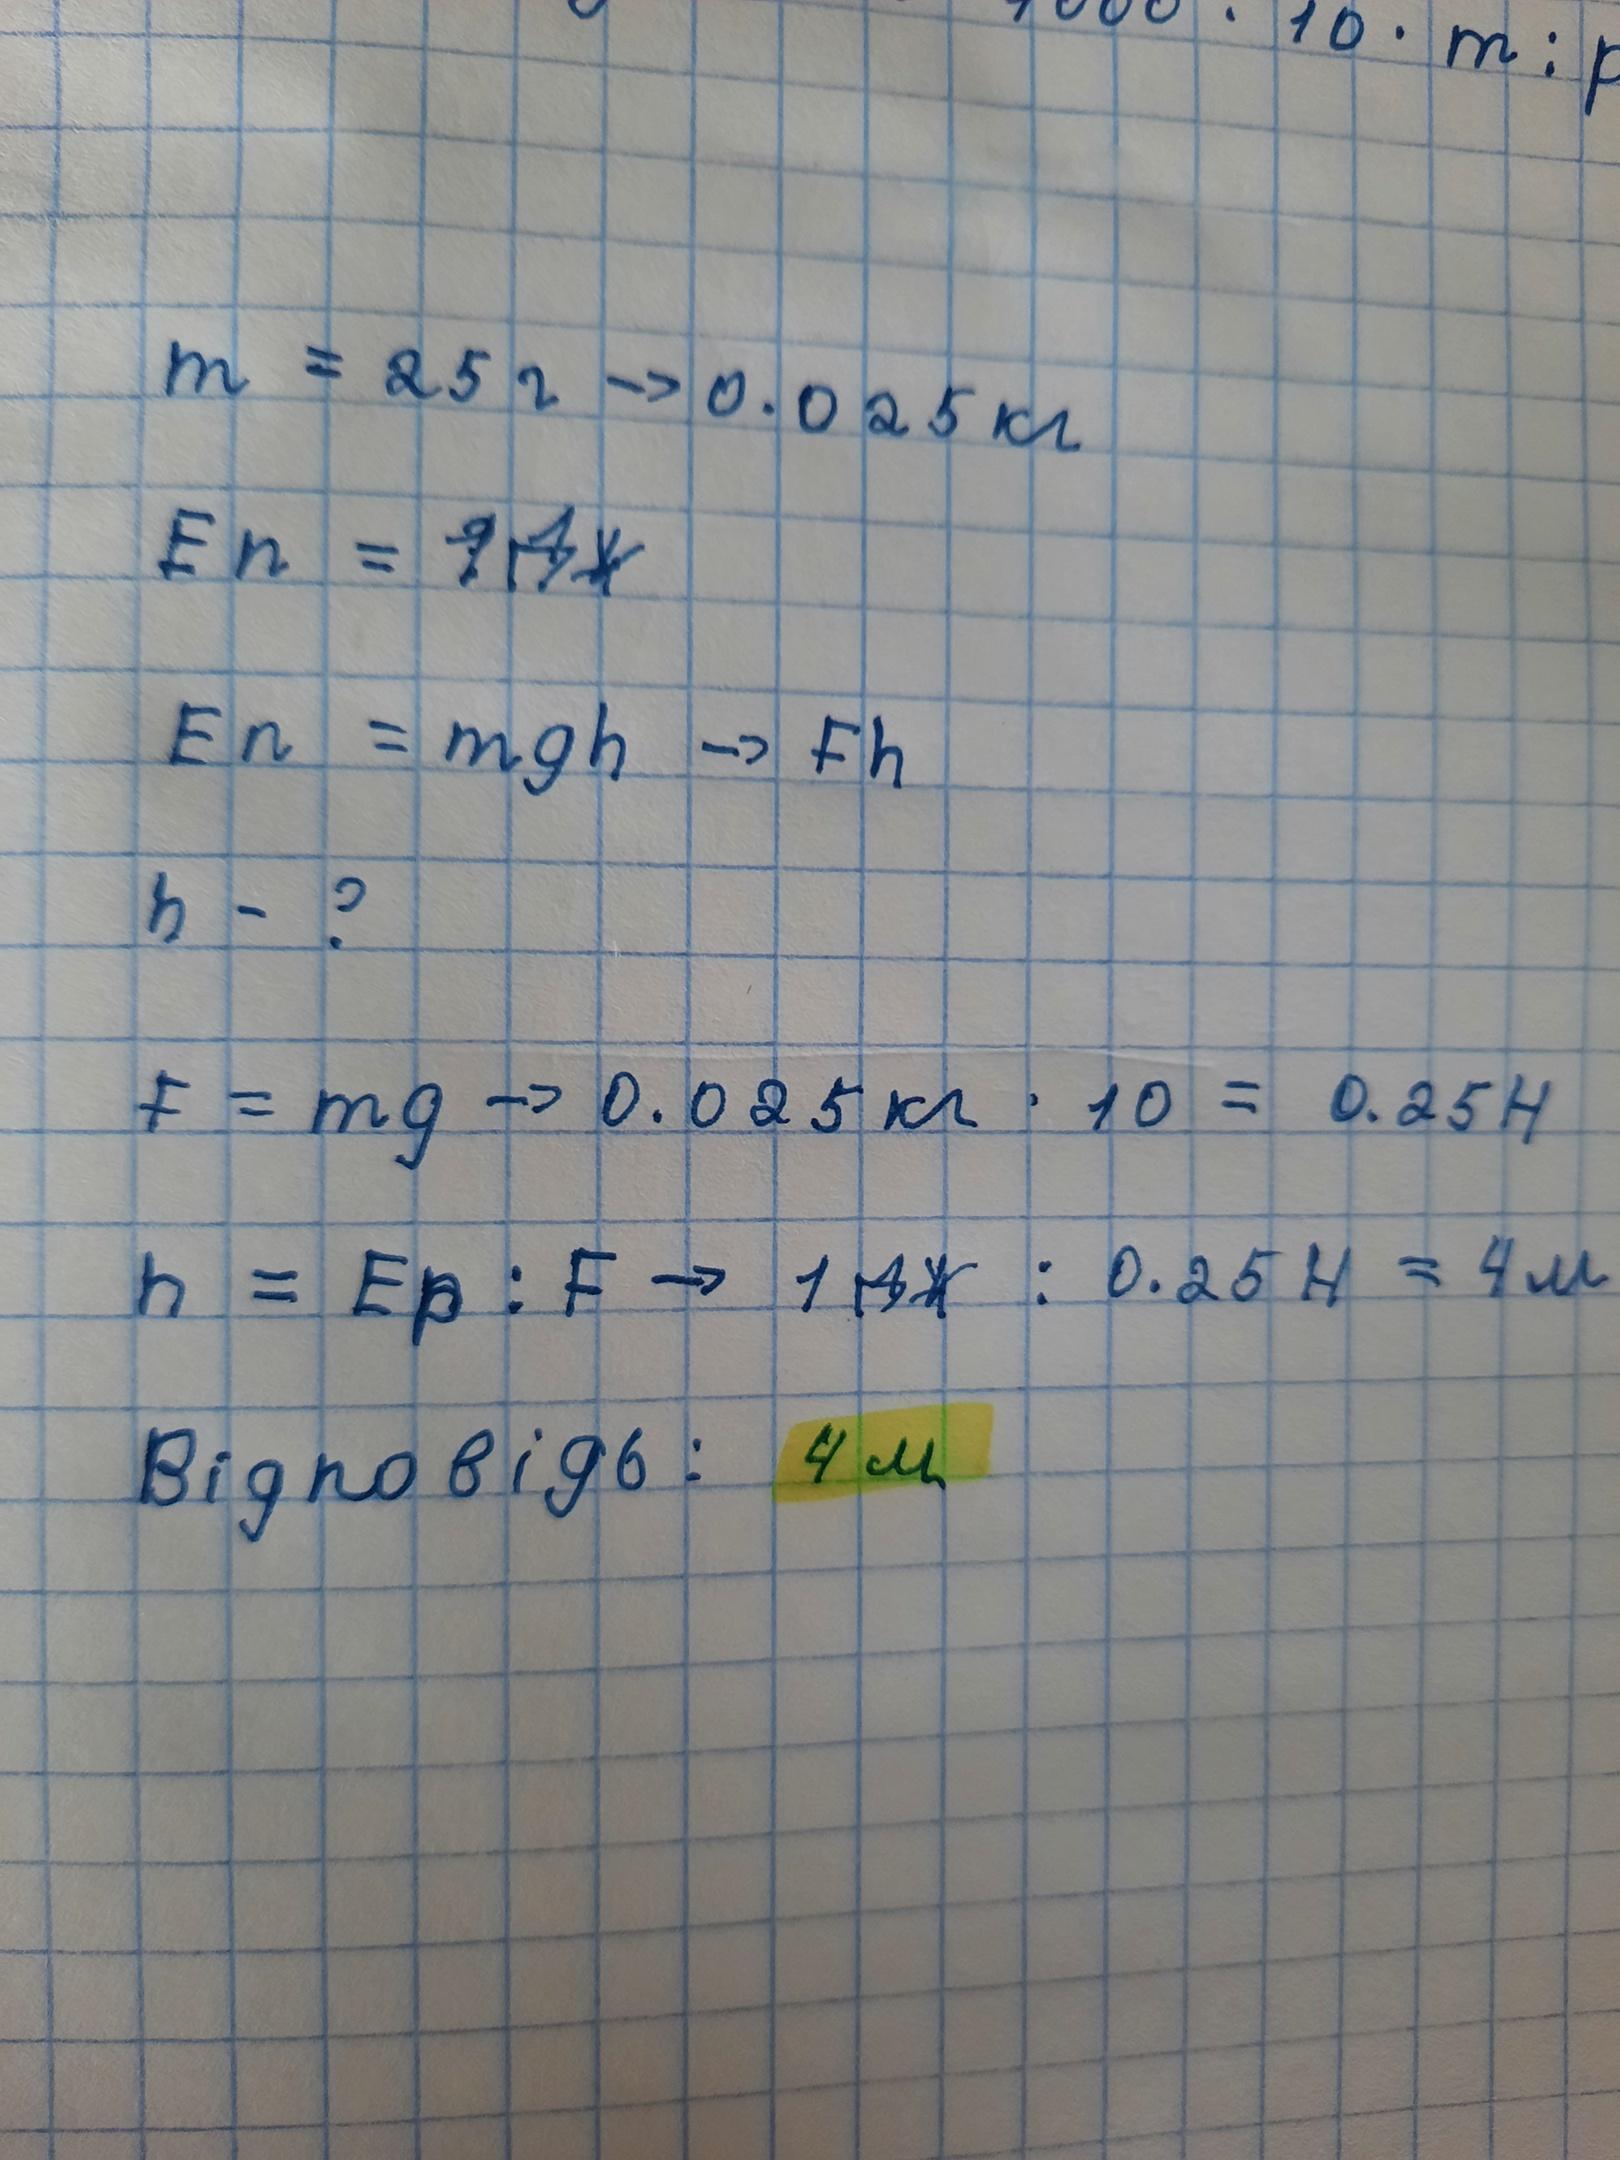 1000 · 10 · m : p
m = 25 г -> 0.025 кг
Еп = 1 Дж
Еп = mgh -> Fh
h - ?
F = mg -> 0.025 кг · 10 = 0.25 Н
h = Ep : F -> 1 Дж : 0.25 Н = 4 м
Відповідь: 4 м